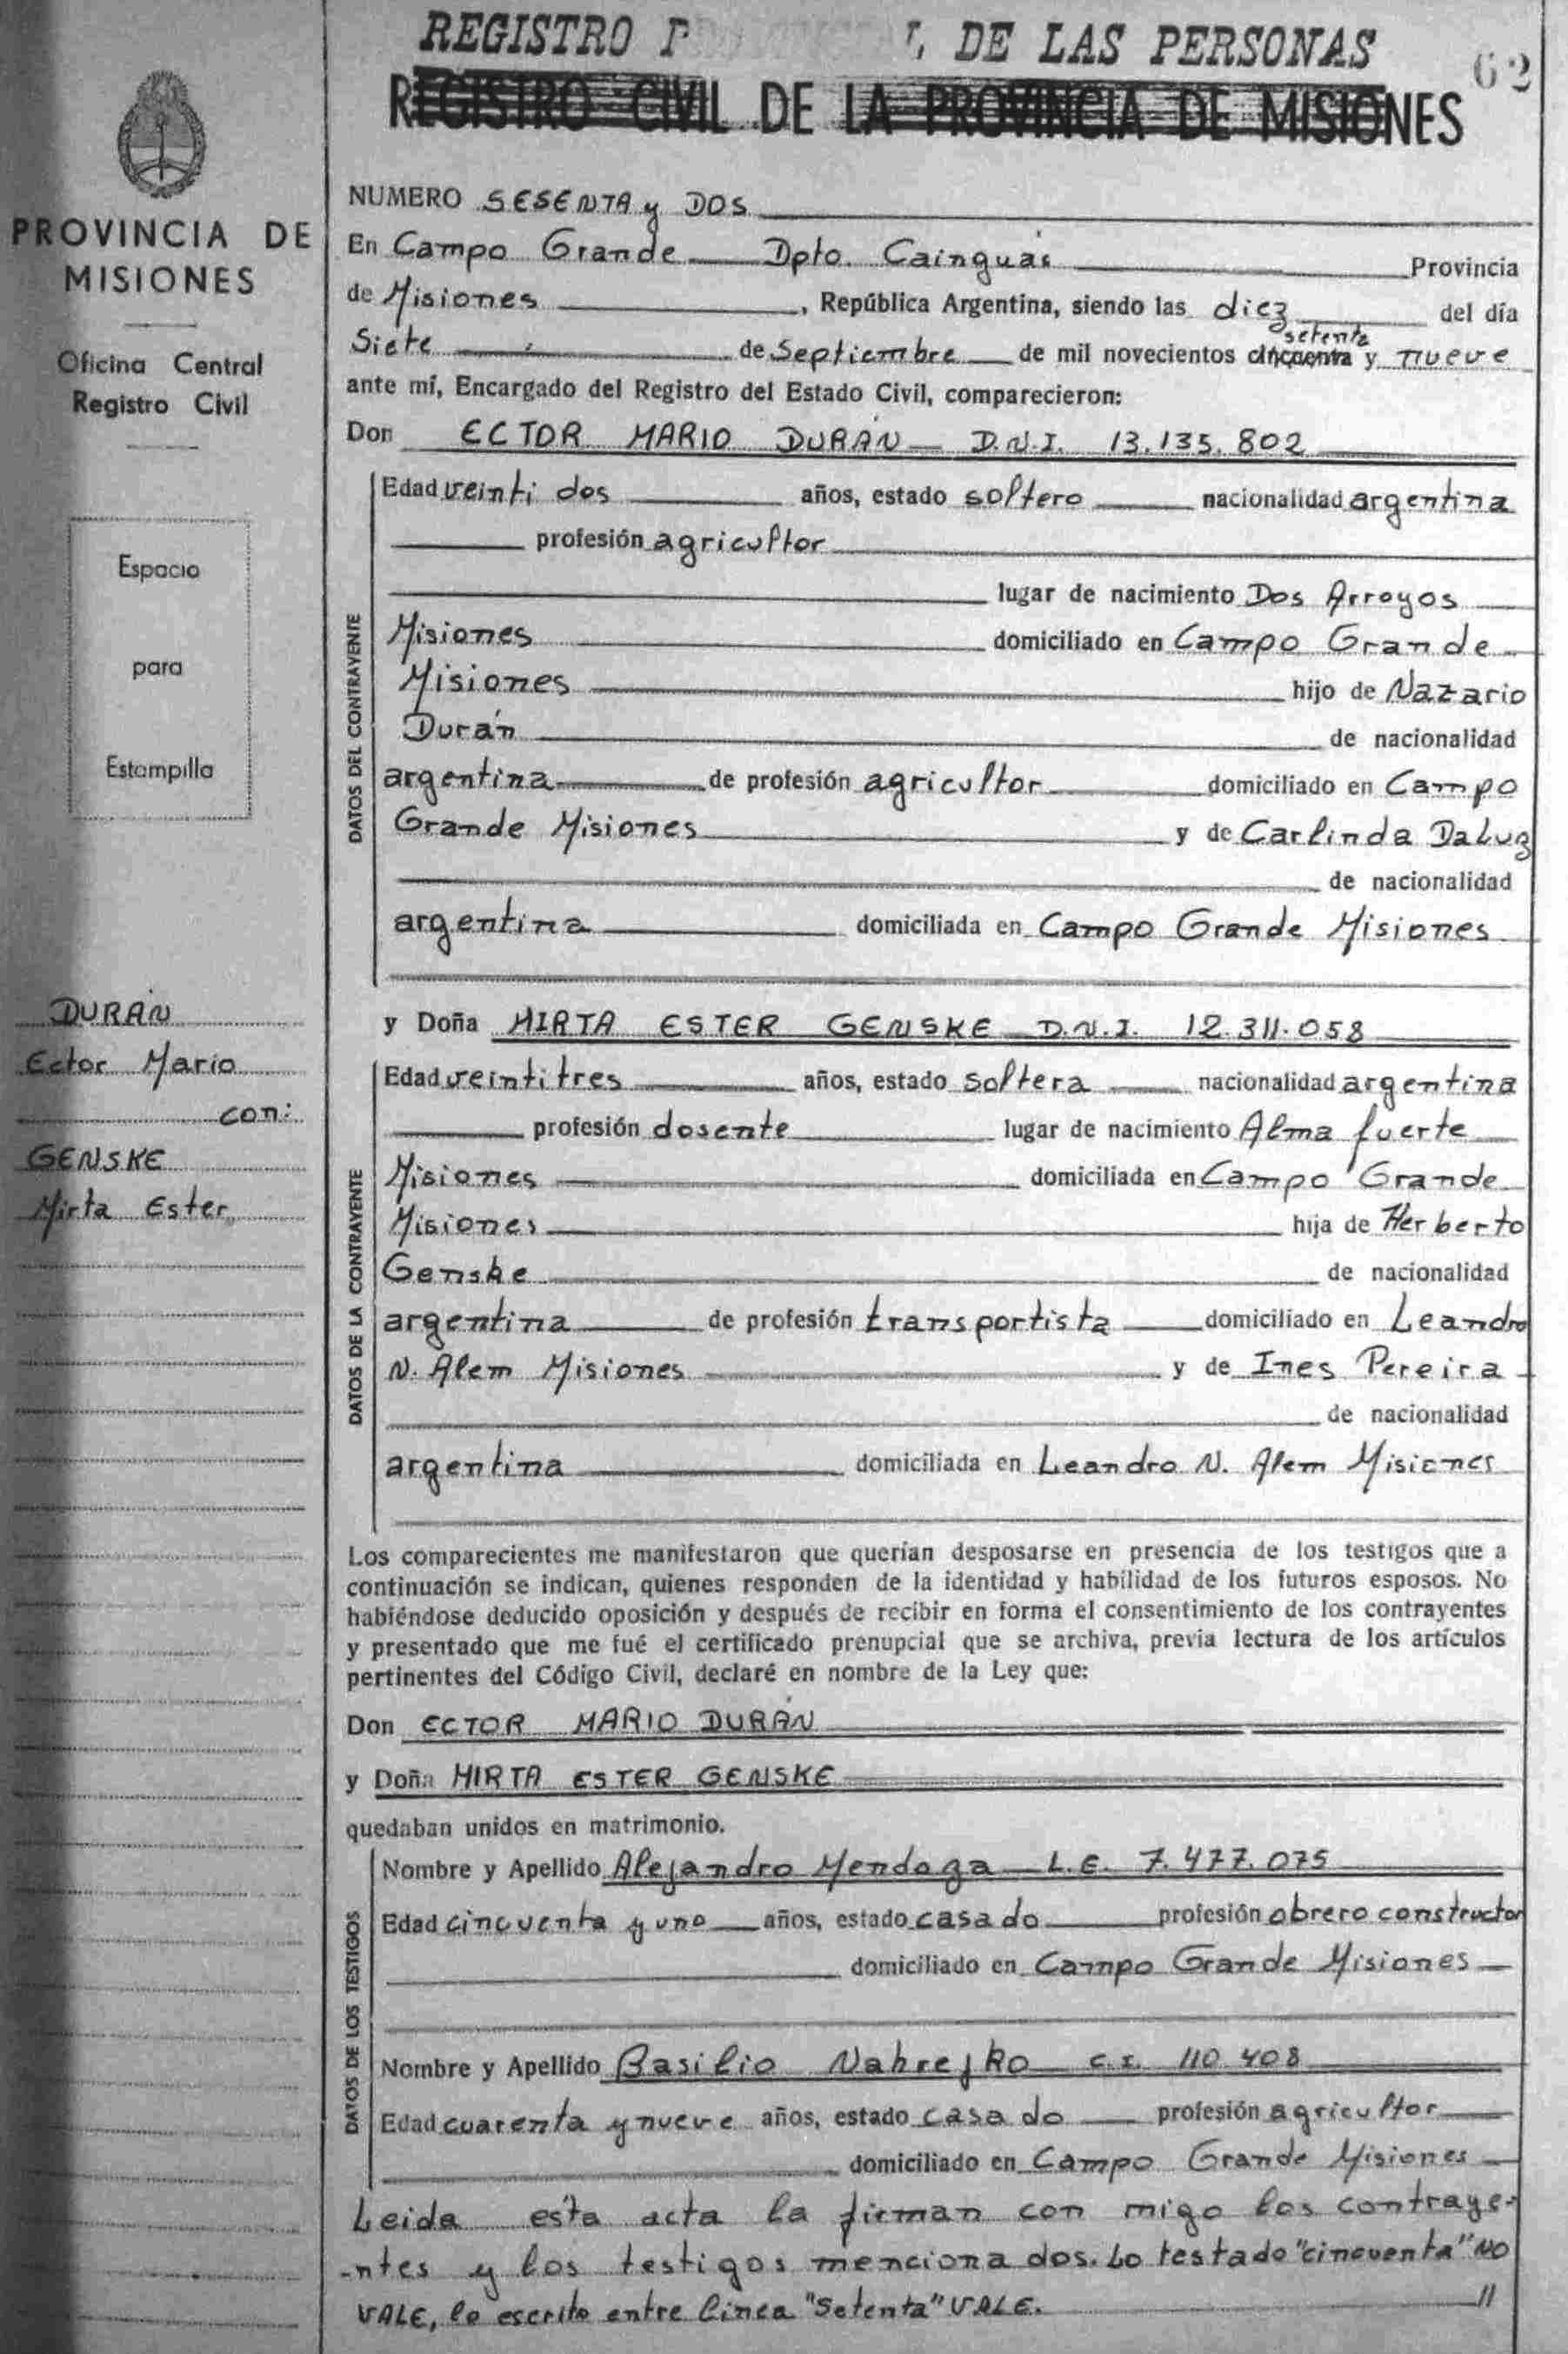 REGISTRO DE LAS PERSONAS
62
REGISTRO CIVIL DE LA PROVINCIA DE MISIONES
PROVINCIA DE
MISIONES
Oficina Central
Registro Civil
Espacio
para
Estampilla
DURÁN
Ector Mario
con:
GENSKE
Mirta Ester
NUMERO SESENTA y DOS
En Campo Grande Dpto. Cainguás Provincia
de Misiones, República Argentina, siendo las diez del día
setenta
Siete de Septiembre de mil novecientos cincuenta y nueve
ante mí, Encargado del Registro del Estado Civil, comparecieron:
Don ECTOR MARIO DURÁN D.N.I. 13.135.802
DATOS DEL CONTRAYENTE
Edad veinti dos años, estado soltero nacionalidad argentina
profesión agricultor
lugar de nacimiento Dos Arroyos
Misiones domiciliado en Campo Grande
Misiones hijo de Nazario
Durán de nacionalidad
argentina de profesión agricultor domiciliado en Campo
Grande Misiones y de Carlinda DaLuz
de nacionalidad
argentina domiciliada en Campo Grande Misiones
y Doña MIRTA ESTER GENSKE D.N.I. 12.311.058
DATOS DE LA CONTRAYENTE
Edad veintitres años, estado soltera nacionalidad argentina
profesión dosente lugar de nacimiento Alma fuerte
Misiones domiciliada en Campo Grande
Misiones hija de Herberto
Genske de nacionalidad
argentina de profesión transportista domiciliado en Leandro
N. Alem Misiones y de Ines Pereira
de nacionalidad
argentina domiciliada en Leandro N. Alem Misiones
Los comparecientes me manifestaron que querían desposarse en presencia de los testigos que a
continuación se indican, quienes responden de la identidad y habilidad de los futuros esposos. No
habiéndose deducido oposición y después de recibir en forma el consentimiento de los contrayentes
y presentado que me fué el certificado prenupcial que se archiva, previa lectura de los artículos
pertinentes del Código Civil, declaré en nombre de la Ley que:
Don ECTOR MARIO DURÁN
y Doña MIRTA ESTER GENSKE
quedaban unidos en matrimonio.
DATOS DE LOS TESTIGOS
Nombre y Apellido Alejandro Mendoza L.E. 7.477.075
Edad cincuenta y uno años, estado casado profesión obrero constructor
domiciliado en Campo Grande Misiones
Nombre y Apellido Basilio Nahrejko C.I. 110 408
Edad cuarenta y nueve años, estado casado profesión agricultor
domiciliado en Campo Grande Misiones
Leida esta acta la firman con migo los contraye-
-ntes y los testigos menciona dos. Lo testado "cincuenta" NO
VALE, lo escrito entre linea "Setenta" VALE. //